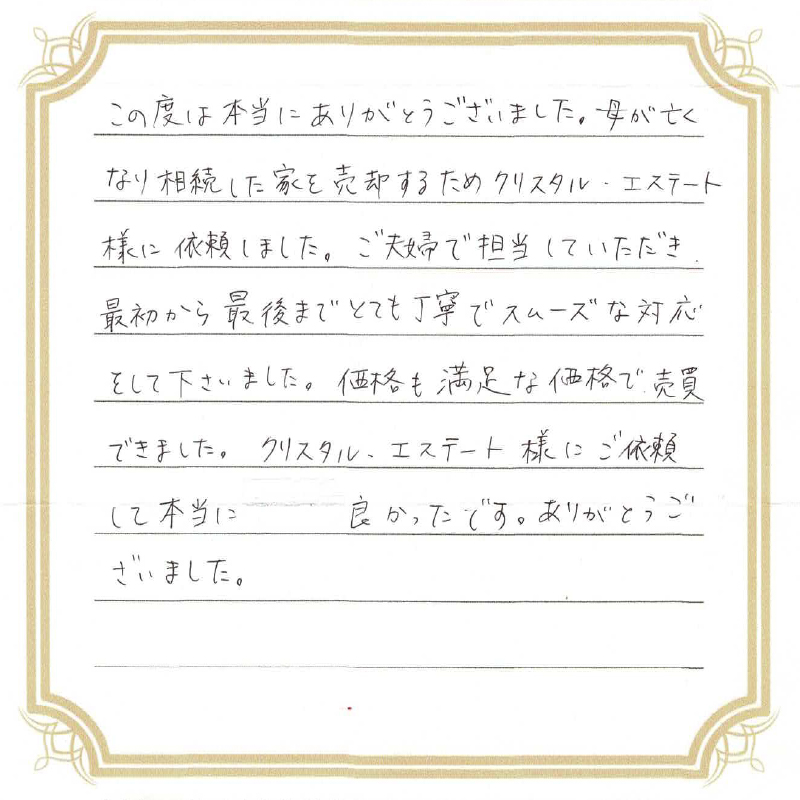 この度は本当にありがとうございました。母が亡く
なり相続した家を売却するためクリスタル・エステート
様に依頼しました。ご夫婦で担当していただき、
最初から最後までとても丁寧でスムーズな対応
をして下さいました。価格も満足な価格で売買
できました。クリスタル・エステート様にご依頼
して本当に 良かったです。ありがとうご
ざいました。